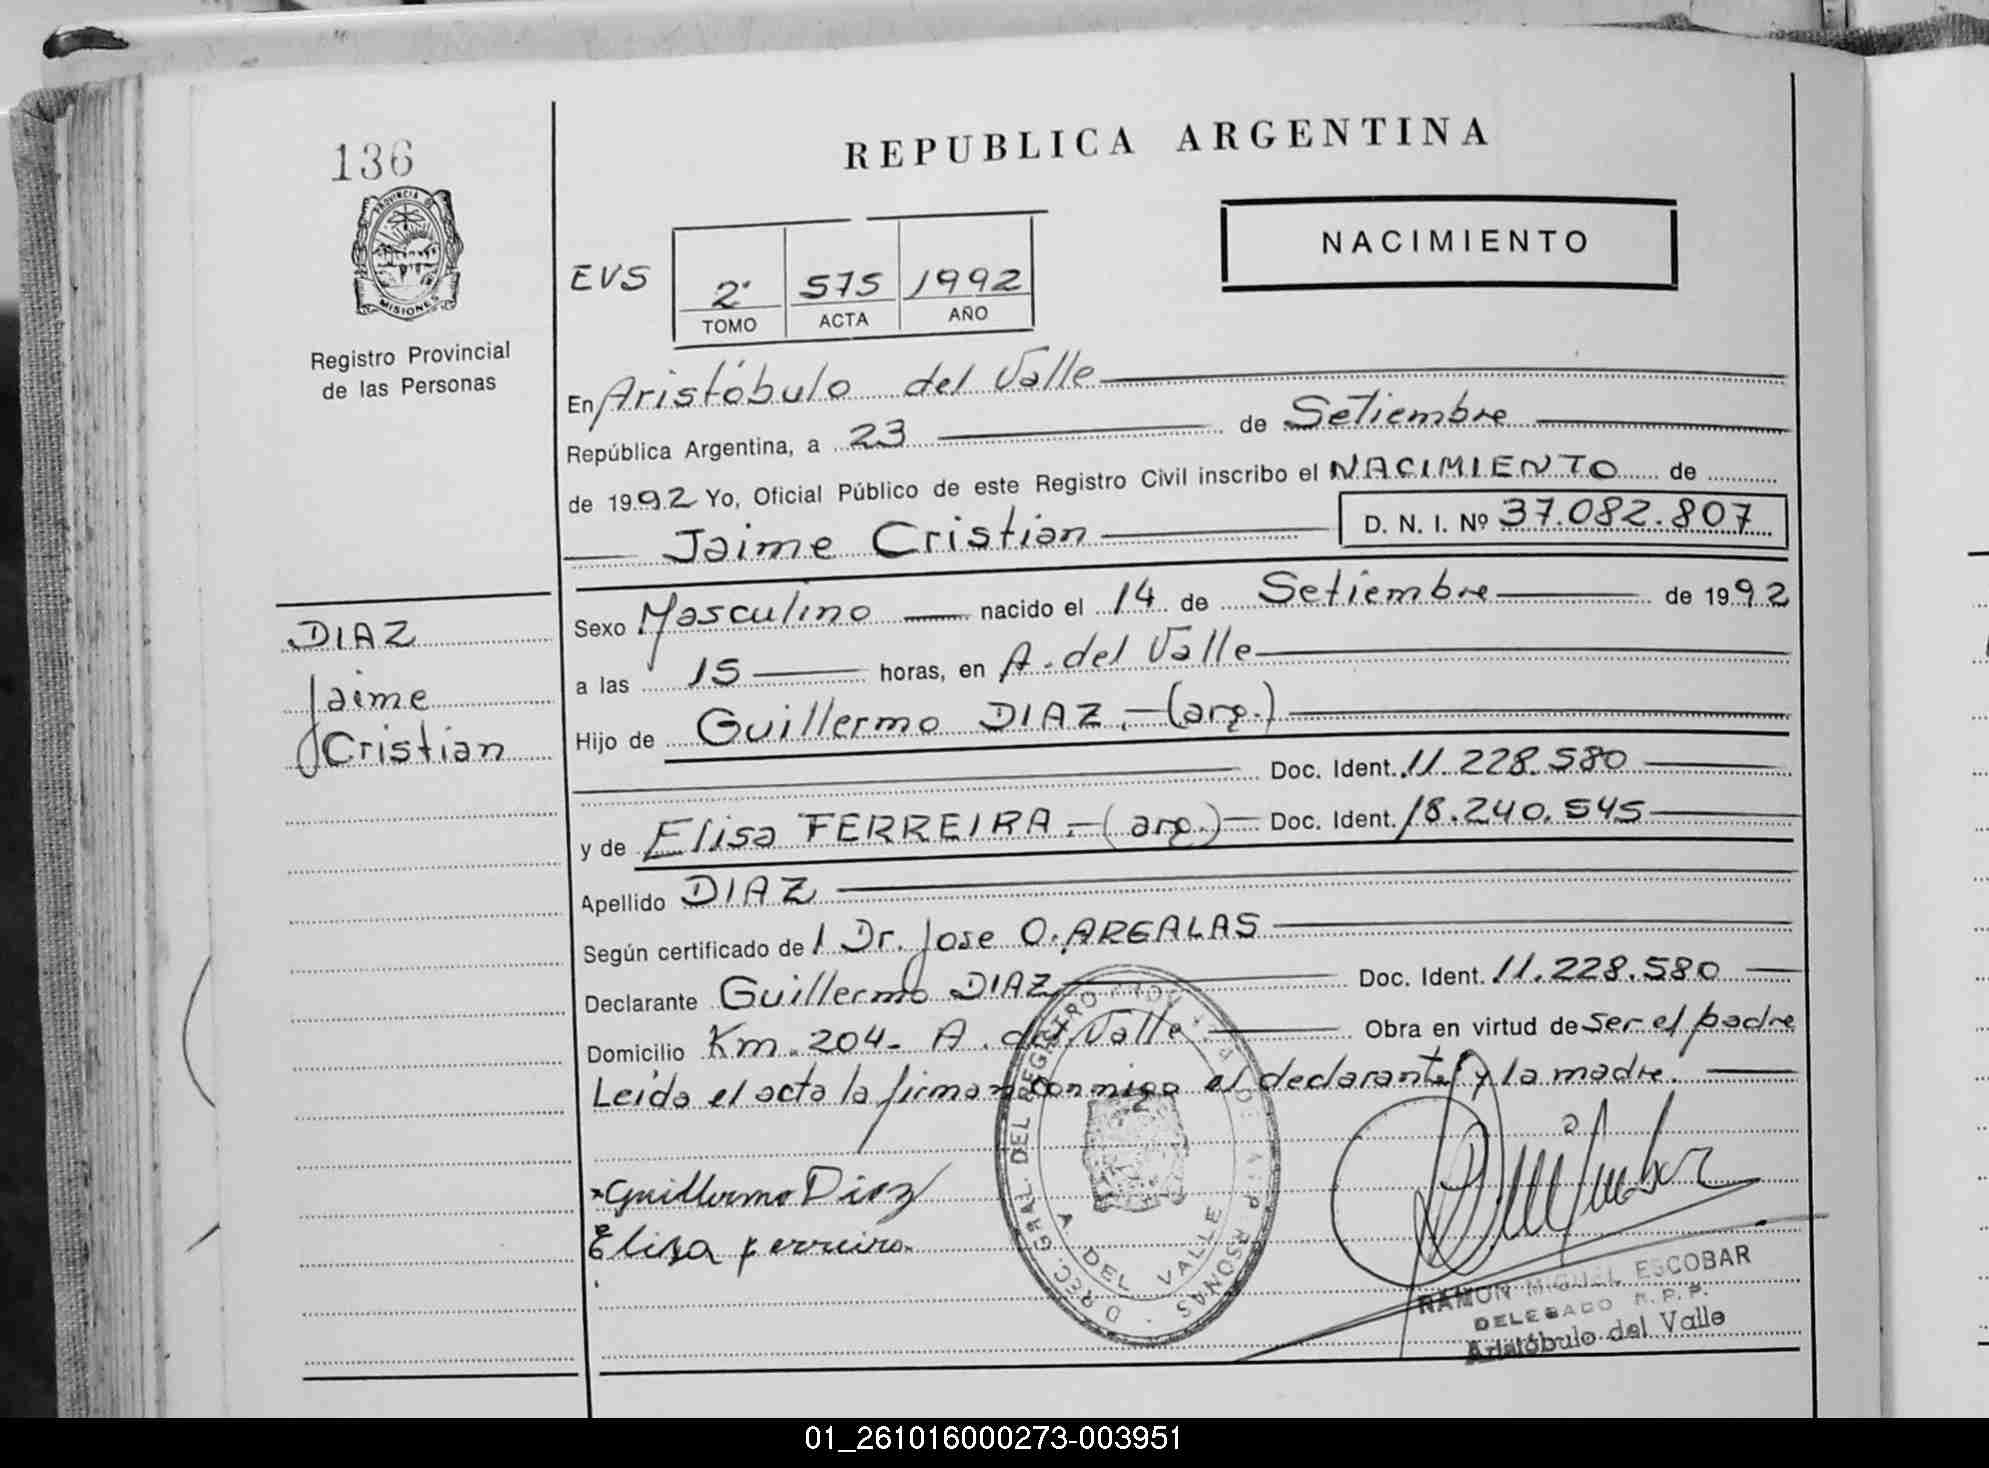 136
PROVINCIA DE
MISIONES
Registro Provincial
de las Personas
DIAZ
Jaime
Cristian
REPUBLICA ARGENTINA
NACIMIENTO
EVS
2º 575 1992
TOMO ACTA AÑO
En Aristóbulo del Valle
República Argentina, a 23 de Setiembre
de 1992 Yo, Oficial Público de este Registro Civil inscribo el NACIMIENTO de
Jaime Cristian D. N. I. Nº 37.082.807
Sexo Masculino nacido el 14 de Setiembre de 1992
a las 15 horas, en A. del Valle
Hijo de Guillermo DIAZ.-(arg.)
Doc. Ident. 11.228.580
y de Elisa FERREIRA.-(arg.)- Doc. Ident. 18.240.545
Apellido DIAZ
Según certificado de l Dr. Jose O. AREALAS
Declarante Guillermo DIAZ Doc. Ident. 11.228.580
Domicilio Km. 204- A. del Valle Obra en virtud de ser el padre
Leída el acta la firman conmigo el declarante y la madre.
Guillermo Diaz
Elisa Ferreira
DIREC. GRAL. DEL REGISTRO PROV. DE LAS PERSONAS
A. DEL VALLE
RAMON MIGUEL ESCOBAR
DELEGADO R. P. P.
Aristóbulo del Valle
01_261016000273-003951